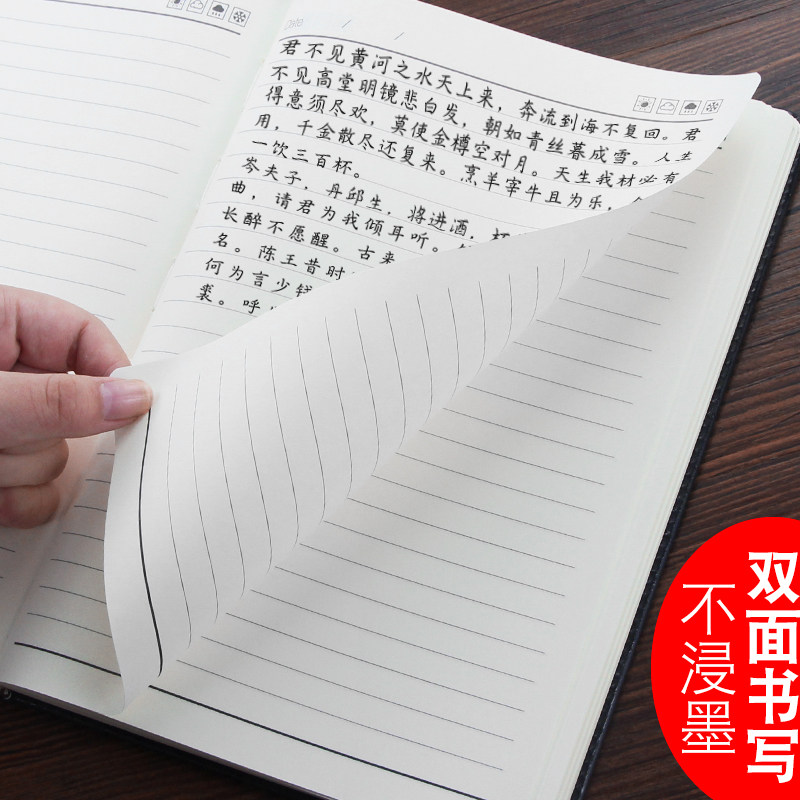 Date: / /
君不见黄河之水天上来，奔流到海不复回。君
不见高堂明镜悲白发，朝如青丝暮成雪。人生
得意须尽欢，莫使金樽空对月。天生我材必有
用，千金散尽还复来。烹羊宰牛且为乐，
一饮三百杯。
岑夫子，丹邱生，将进酒，
曲，请君为我倾耳听。
长醉不愿醒。古来
名。陈王昔时
何为言少钱
裘。呼
双面书写
不浸墨